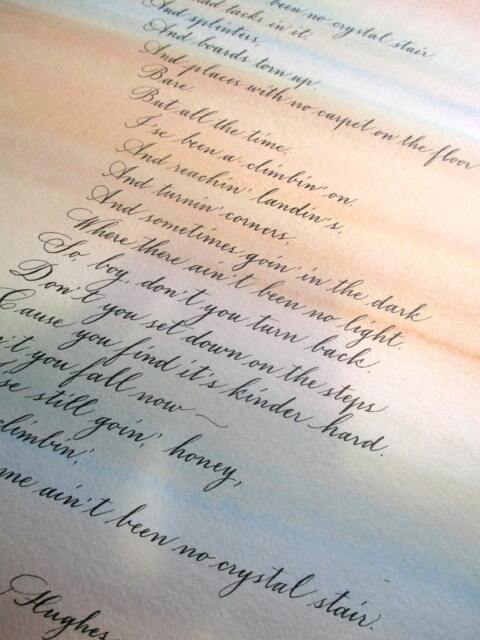 been no crystal stair
had tacks in it,
And splinters,
And boards torn up,
And places with no carpet on the floor
Bare.
But all the time
I'se been a-climbin' on,
And reachin' landin's,
And turnin' corners,
And sometimes goin' in the dark
Where there ain't been no light.
So, boy, don't you turn back.
Don't you set down on the steps
'Cause you find it's kinder hard.
n't you fall now ~
se still goin', honey,
climbin',
me ain't been no crystal stair.
Hughes